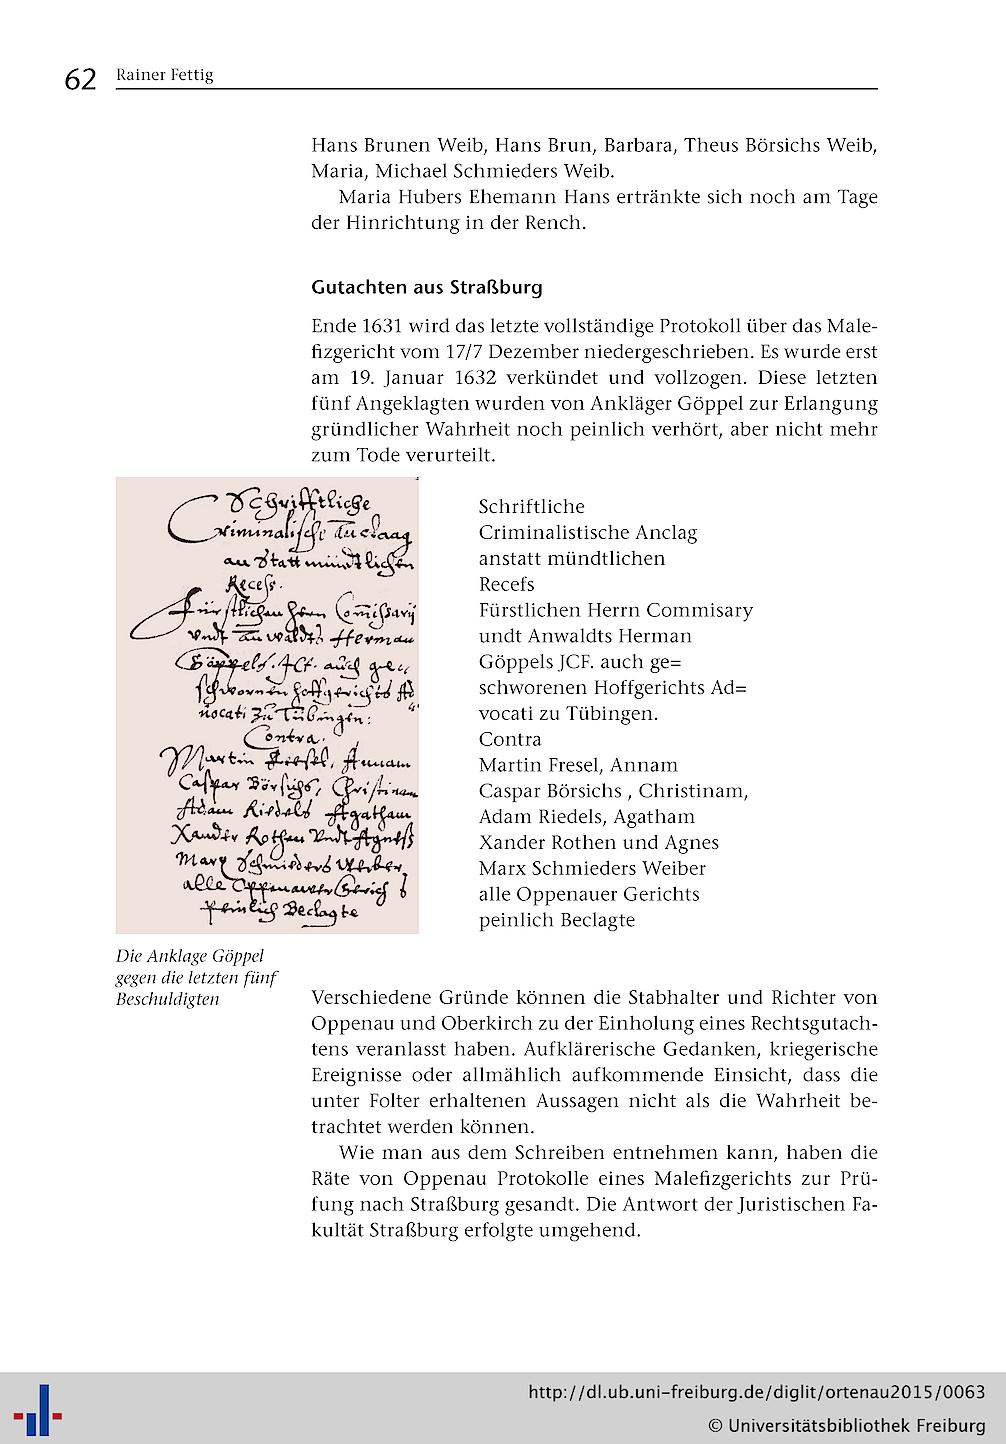 62 Rainer Fettig
Hans Brunen Weib, Hans Brun, Barbara, Theus Börsichs Weib,
Maria, Michael Schmieders Weib.
Maria Hubers Ehemann Hans ertränkte sich noch am Tage
der Hinrichtung in der Rench.
Gutachten aus Straßburg
Ende 1631 wird das letzte vollständige Protokoll über das Male-
fizgericht vom 17/7 Dezember niedergeschrieben. Es wurde erst
am 19. Januar 1632 verkündet und vollzogen. Diese letzten
fünf Angeklagten wurden von Ankläger Göppel zur Erlangung
gründlicher Wahrheit noch peinlich verhört, aber nicht mehr
zum Tode verurteilt.
Schrifftliche
Criminalische Anclaag
an Statt mündtlichen
Recess.
Fürstlichen Herrn Commissarij
Vndt Anwaldts Herman
Göppels. JCt. auch ge
schwornen Hoffgerichts Ad
uocati Zu Tübingen:
Contra.
Martin Fiesel, Annam
Caspar Börsichs, Christinam
Adam Riedels Agatham
Xander Rothen Vndt Agness
Marx Schmieders Weiber
alle Oppenawer Gerichts
peinlich Beclagte
Schriftliche
Criminalistische Anclag
anstatt mündtlichen
Recefs
Fürstlichen Herrn Commisary
undt Anwaldts Herman
Göppels JCF. auch ge=
schworenen Hoffgerichts Ad=
vocati zu Tübingen.
Contra
Martin Fresel, Annam
Caspar Börsichs , Christinam,
Adam Riedels, Agatham
Xander Rothen und Agnes
Marx Schmieders Weiber
alle Oppenauer Gerichts
peinlich Beclagte
Die Anklage Göppel
gegen die letzten fünf
Beschuldigten
Verschiedene Gründe können die Stabhalter und Richter von
Oppenau und Oberkirch zu der Einholung eines Rechtsgutach-
tens veranlasst haben. Aufklärerische Gedanken, kriegerische
Ereignisse oder allmählich aufkommende Einsicht, dass die
unter Folter erhaltenen Aussagen nicht als die Wahrheit be-
trachtet werden können.
Wie man aus dem Schreiben entnehmen kann, haben die
Räte von Oppenau Protokolle eines Malefizgerichts zur Prü-
fung nach Straßburg gesandt. Die Antwort der Juristischen Fa-
kultät Straßburg erfolgte umgehend.
http://dl.ub.uni-freiburg.de/diglit/ortenau2015/0063
© Universitätsbibliothek Freiburg